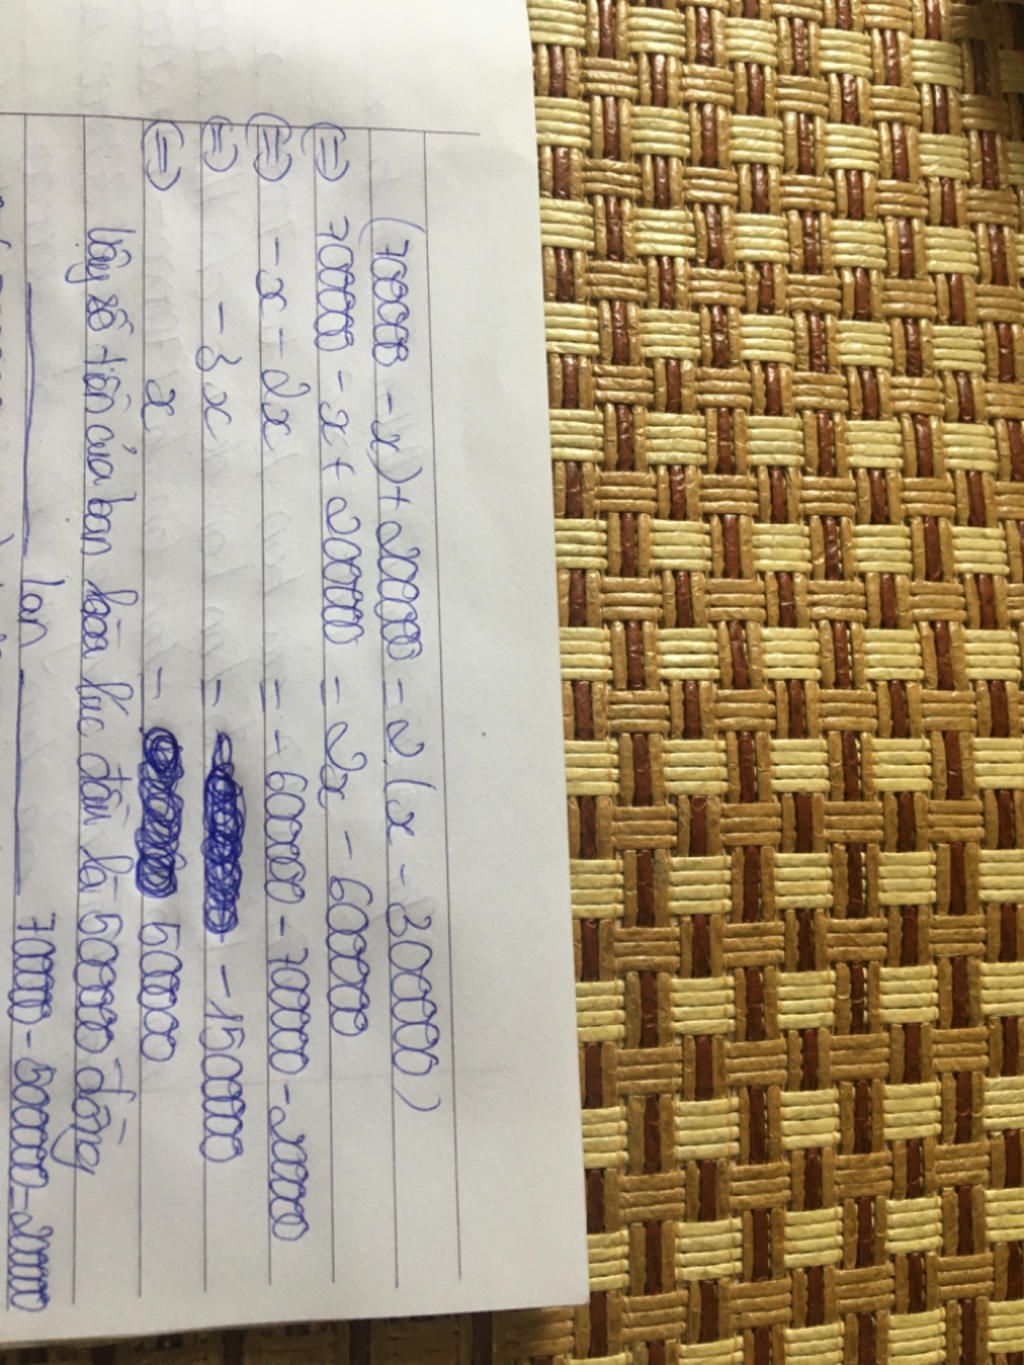 (70000 - x) + 20000 = 2 (x - 30000)
⇔ 70000 - x + 20000 = 2x - 60000
⇔ - x - 2x = - 60000 - 70000 - 20000
⇔ - 3x = - 150000
⇔ x = 50000
Vậy số tiền của bạn lúc đầu là 50000 đồng
lan 70000 - 50000 = 20000